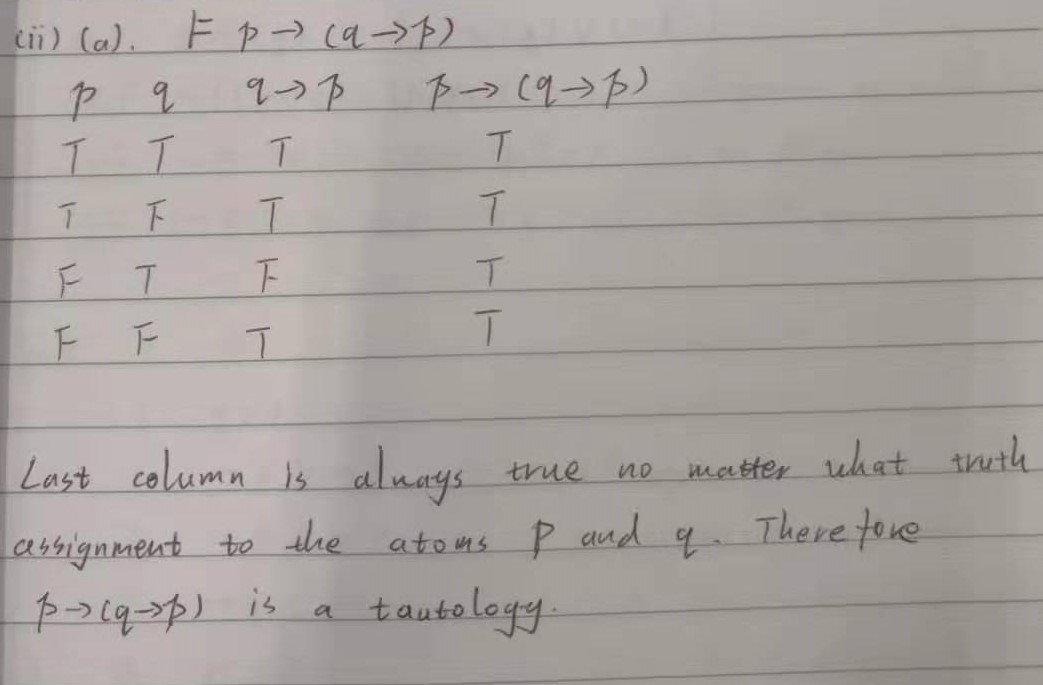 (ii) (a). ⊨ p → (q → p)
p q q → p p → (q → p)
T T T T
T F T T
F T F T
F F T T
Last column is always true no matter what truth
assignment to the atoms p and q. Therefore
p → (q → p) is a tautology.